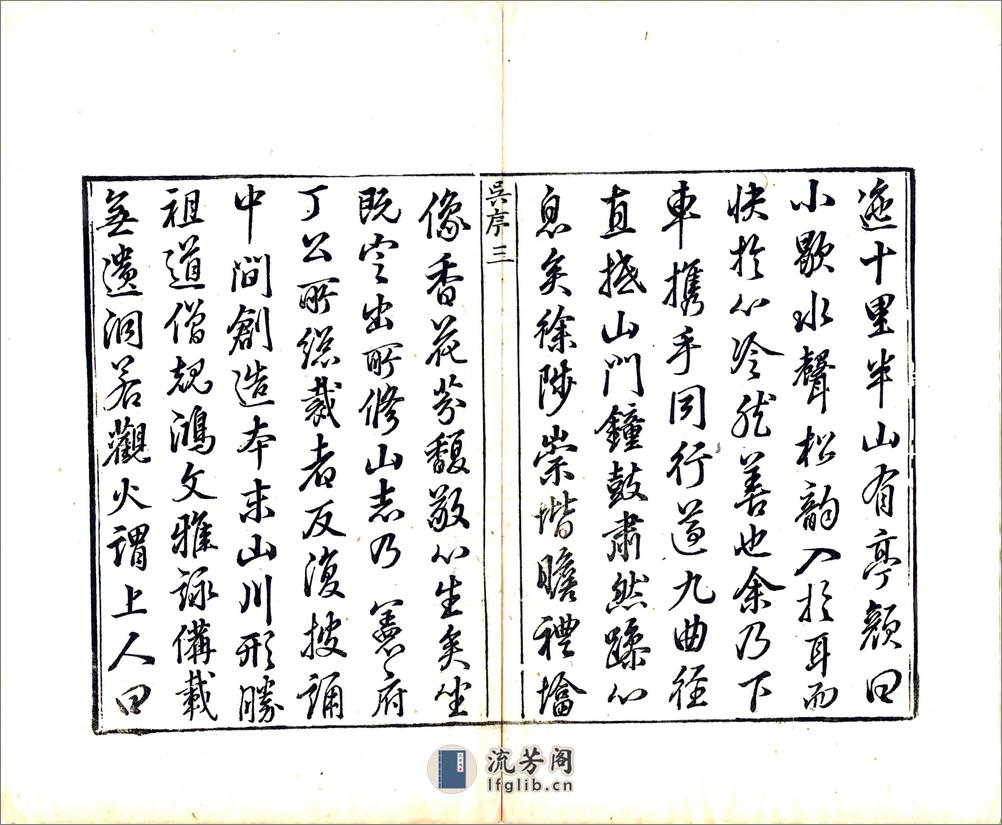 迤十里半山有亭顏曰
小歇水聲松韻入於耳而
快於心泠然善也余乃下
車攜手同行道九曲徑
直抵山門鐘鼓肅然躁心
息矣徐陟崇堦瞻禮
像香花芬馥敬心生矣坐
既定出所修山志乃 憲府
丁公所總裁者反復披誦
中間創造本末山川形勝
祖道僧規鴻文雅詠備載
無遺洞若觀火謂上人曰
吳序 三
流芳阁
lfglib.cn